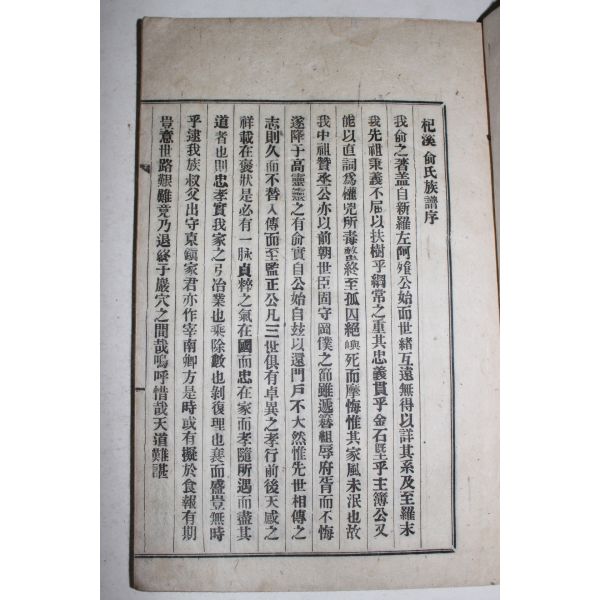 杞溪俞氏族譜序
我俞之著盖自新羅左阿飡公始而世緒互遠無得以詳其系及至羅末
我先祖秉義不屈以扶樹乎綱常之重其忠義貫乎金石曁乎主簿公又
能以直詞爲權兇所毒螫終至孤囚絕嶼死而靡悔惟其家風未泯也故
我中祖贊丞公亦以前朝世臣固守罔僕之節雖遞簪組辱府胥而不悔
遂降于高靈靈之有俞實自公始自玆以還門戶不大然惟先世相傳之
志則久而不替入傳而至監正公凡三世俱有卓異之孝行前後天感之
祥載在褒狀是必有一脉貞粹之氣在國而忠在家而孝隨所遇而盡其
道者也則忠孝實我家之弓冶業也乘除數也剝復理也衰而盛豈無時
乎逮我族叔父出守京鎭家君亦作宰南鄕方是時或有擬於食報有期
豈意世路艱難竟乃退終于巖穴之間哉嗚呼惜哉天道難諶